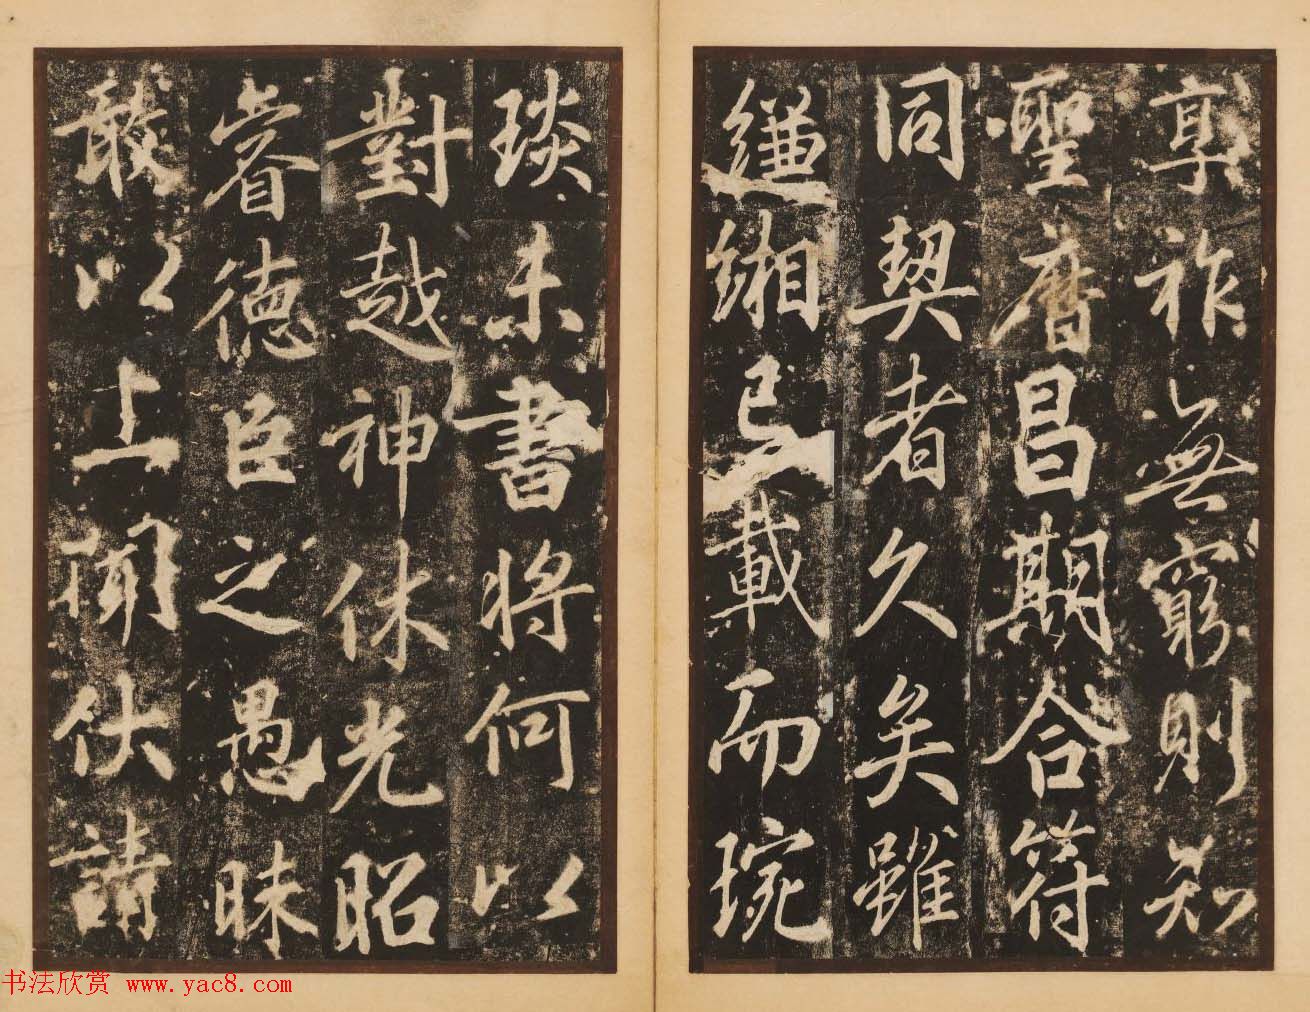 享祚無窮則知
聖曆昌期合符
同契者久矣雖
縑緗已載而琬
琰未書將何以
對越神休光昭
睿德臣之愚昧
敢以上聞伏請
书法欣赏 www.yac8.com